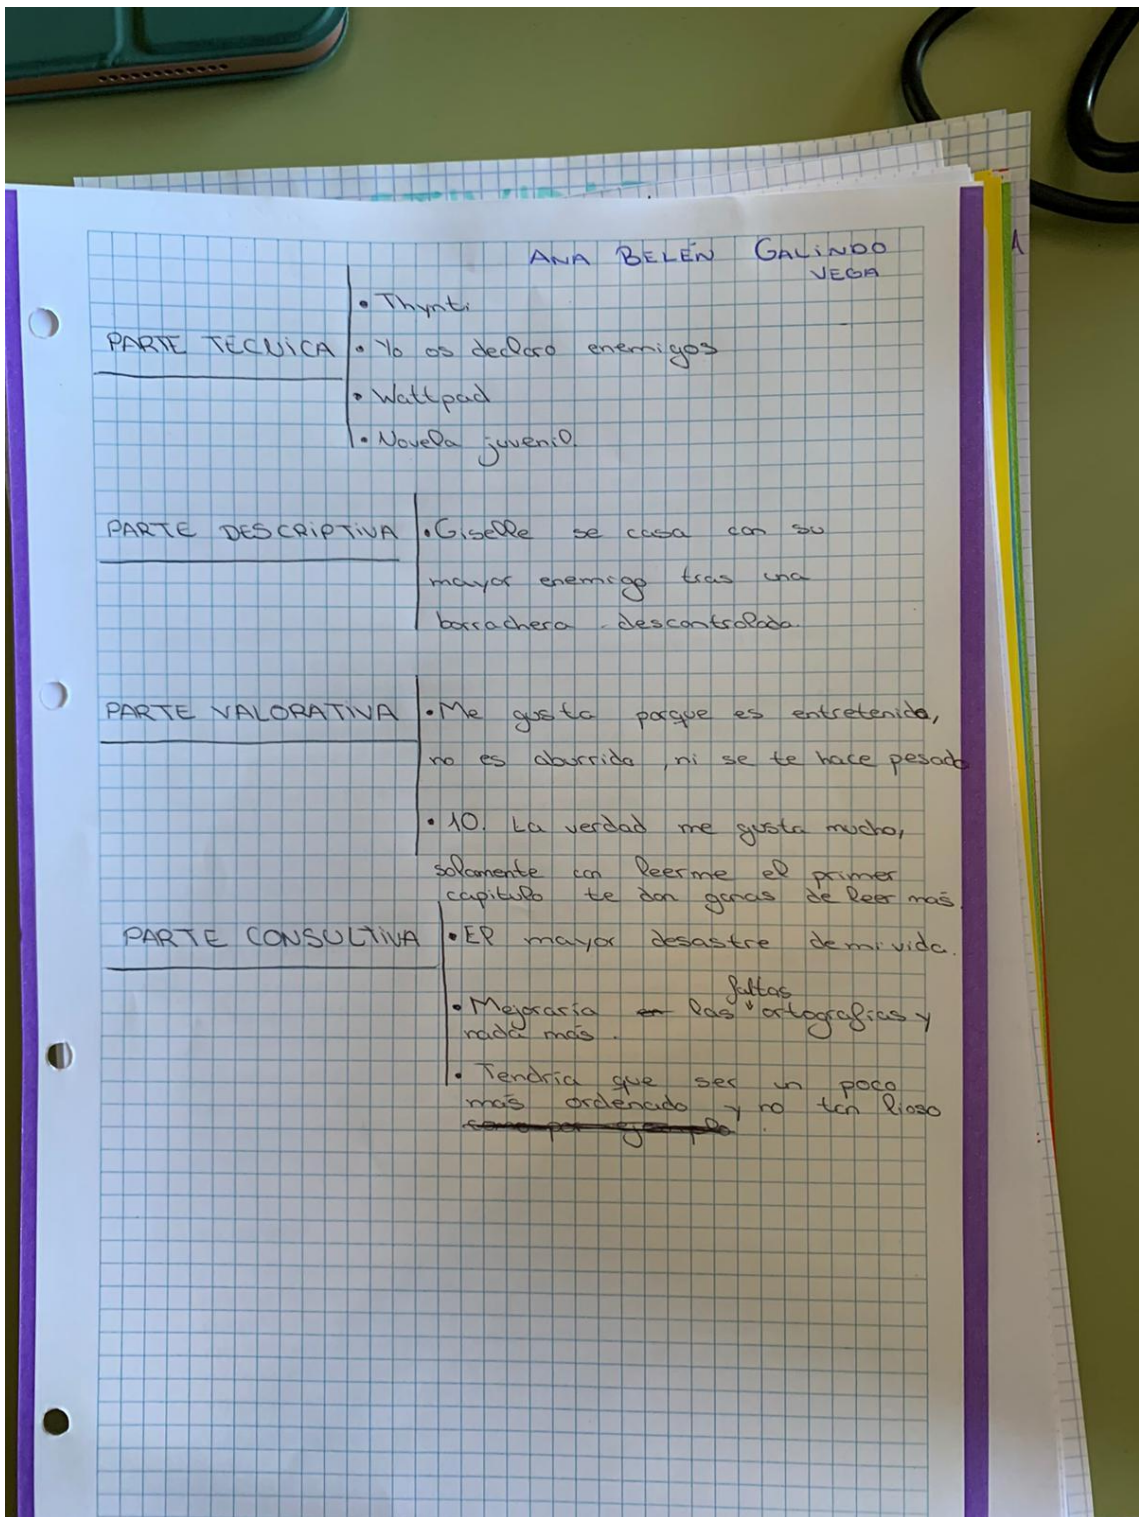 ANA BELÉN GALINDO
VEGA
PARTE TÉCNICA
• Thynti
• Yo os declaro enemigos
• Wattpad
• Novela juvenil.
PARTE DESCRIPTIVA
• Giselle se casa con su
mayor enemigo tras una
borrachera descontrolada.
PARTE VALORATIVA
• Me gusta porque es entretenida,
no es aburrida, ni se te hace pesado
• 10. La verdad me gusta mucho,
solamente con leerme el primer
capitulo te dan ganas de leer más.
PARTE CONSULTIVA
• El mayor desastre de mi vida.
• Mejoraría las faltas ortografias y
nada más.
• Tendría que ser un poco
más ordenado y no tan lioso